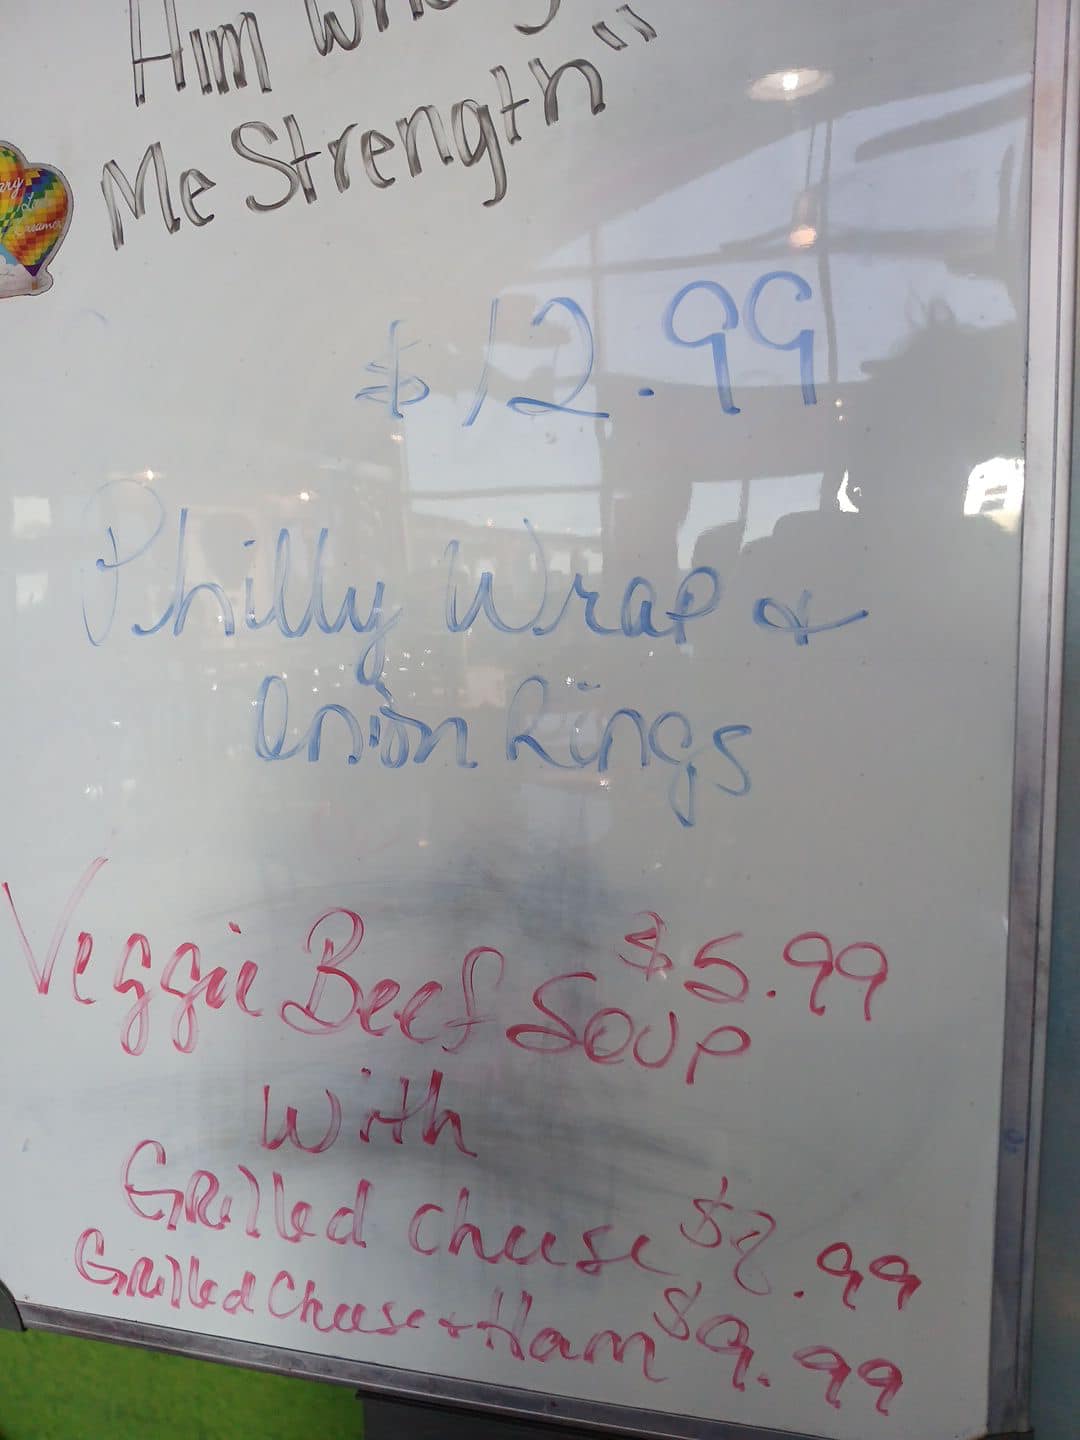 Him
Me Strength"
$12.99
Philly Wrap &
Onion Rings
Veggie Beef Soup $5.99
With
Grilled Cheese $ .99
Grilled Cheese + Ham $9.99